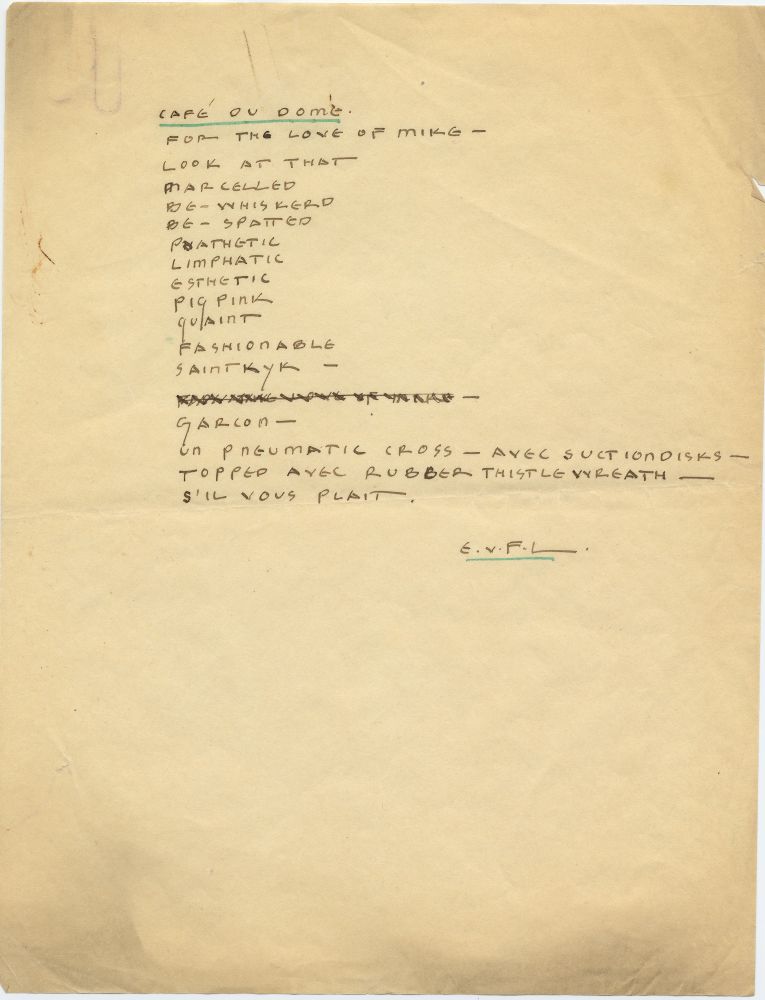 CAFÉ DU DOMÈ.
FOR THE LOVE OF MIKE —
LOOK AT THAT
MARCELLED
BE-WHISKERD
BE-SPATTED
PATHETIC
LIMPHATIC
ESTHETIC
PIG PINK
QUAINT
FASHIONABLE
SAINTKYK —
GARCON —
UN PNEUMATIC CROSS — AVEC SUCTIONDISKS —
TOPPED AVEC RUBBER THISTLEWREATH —
S'IL VOUS PLAIT.
E.V.F.L.